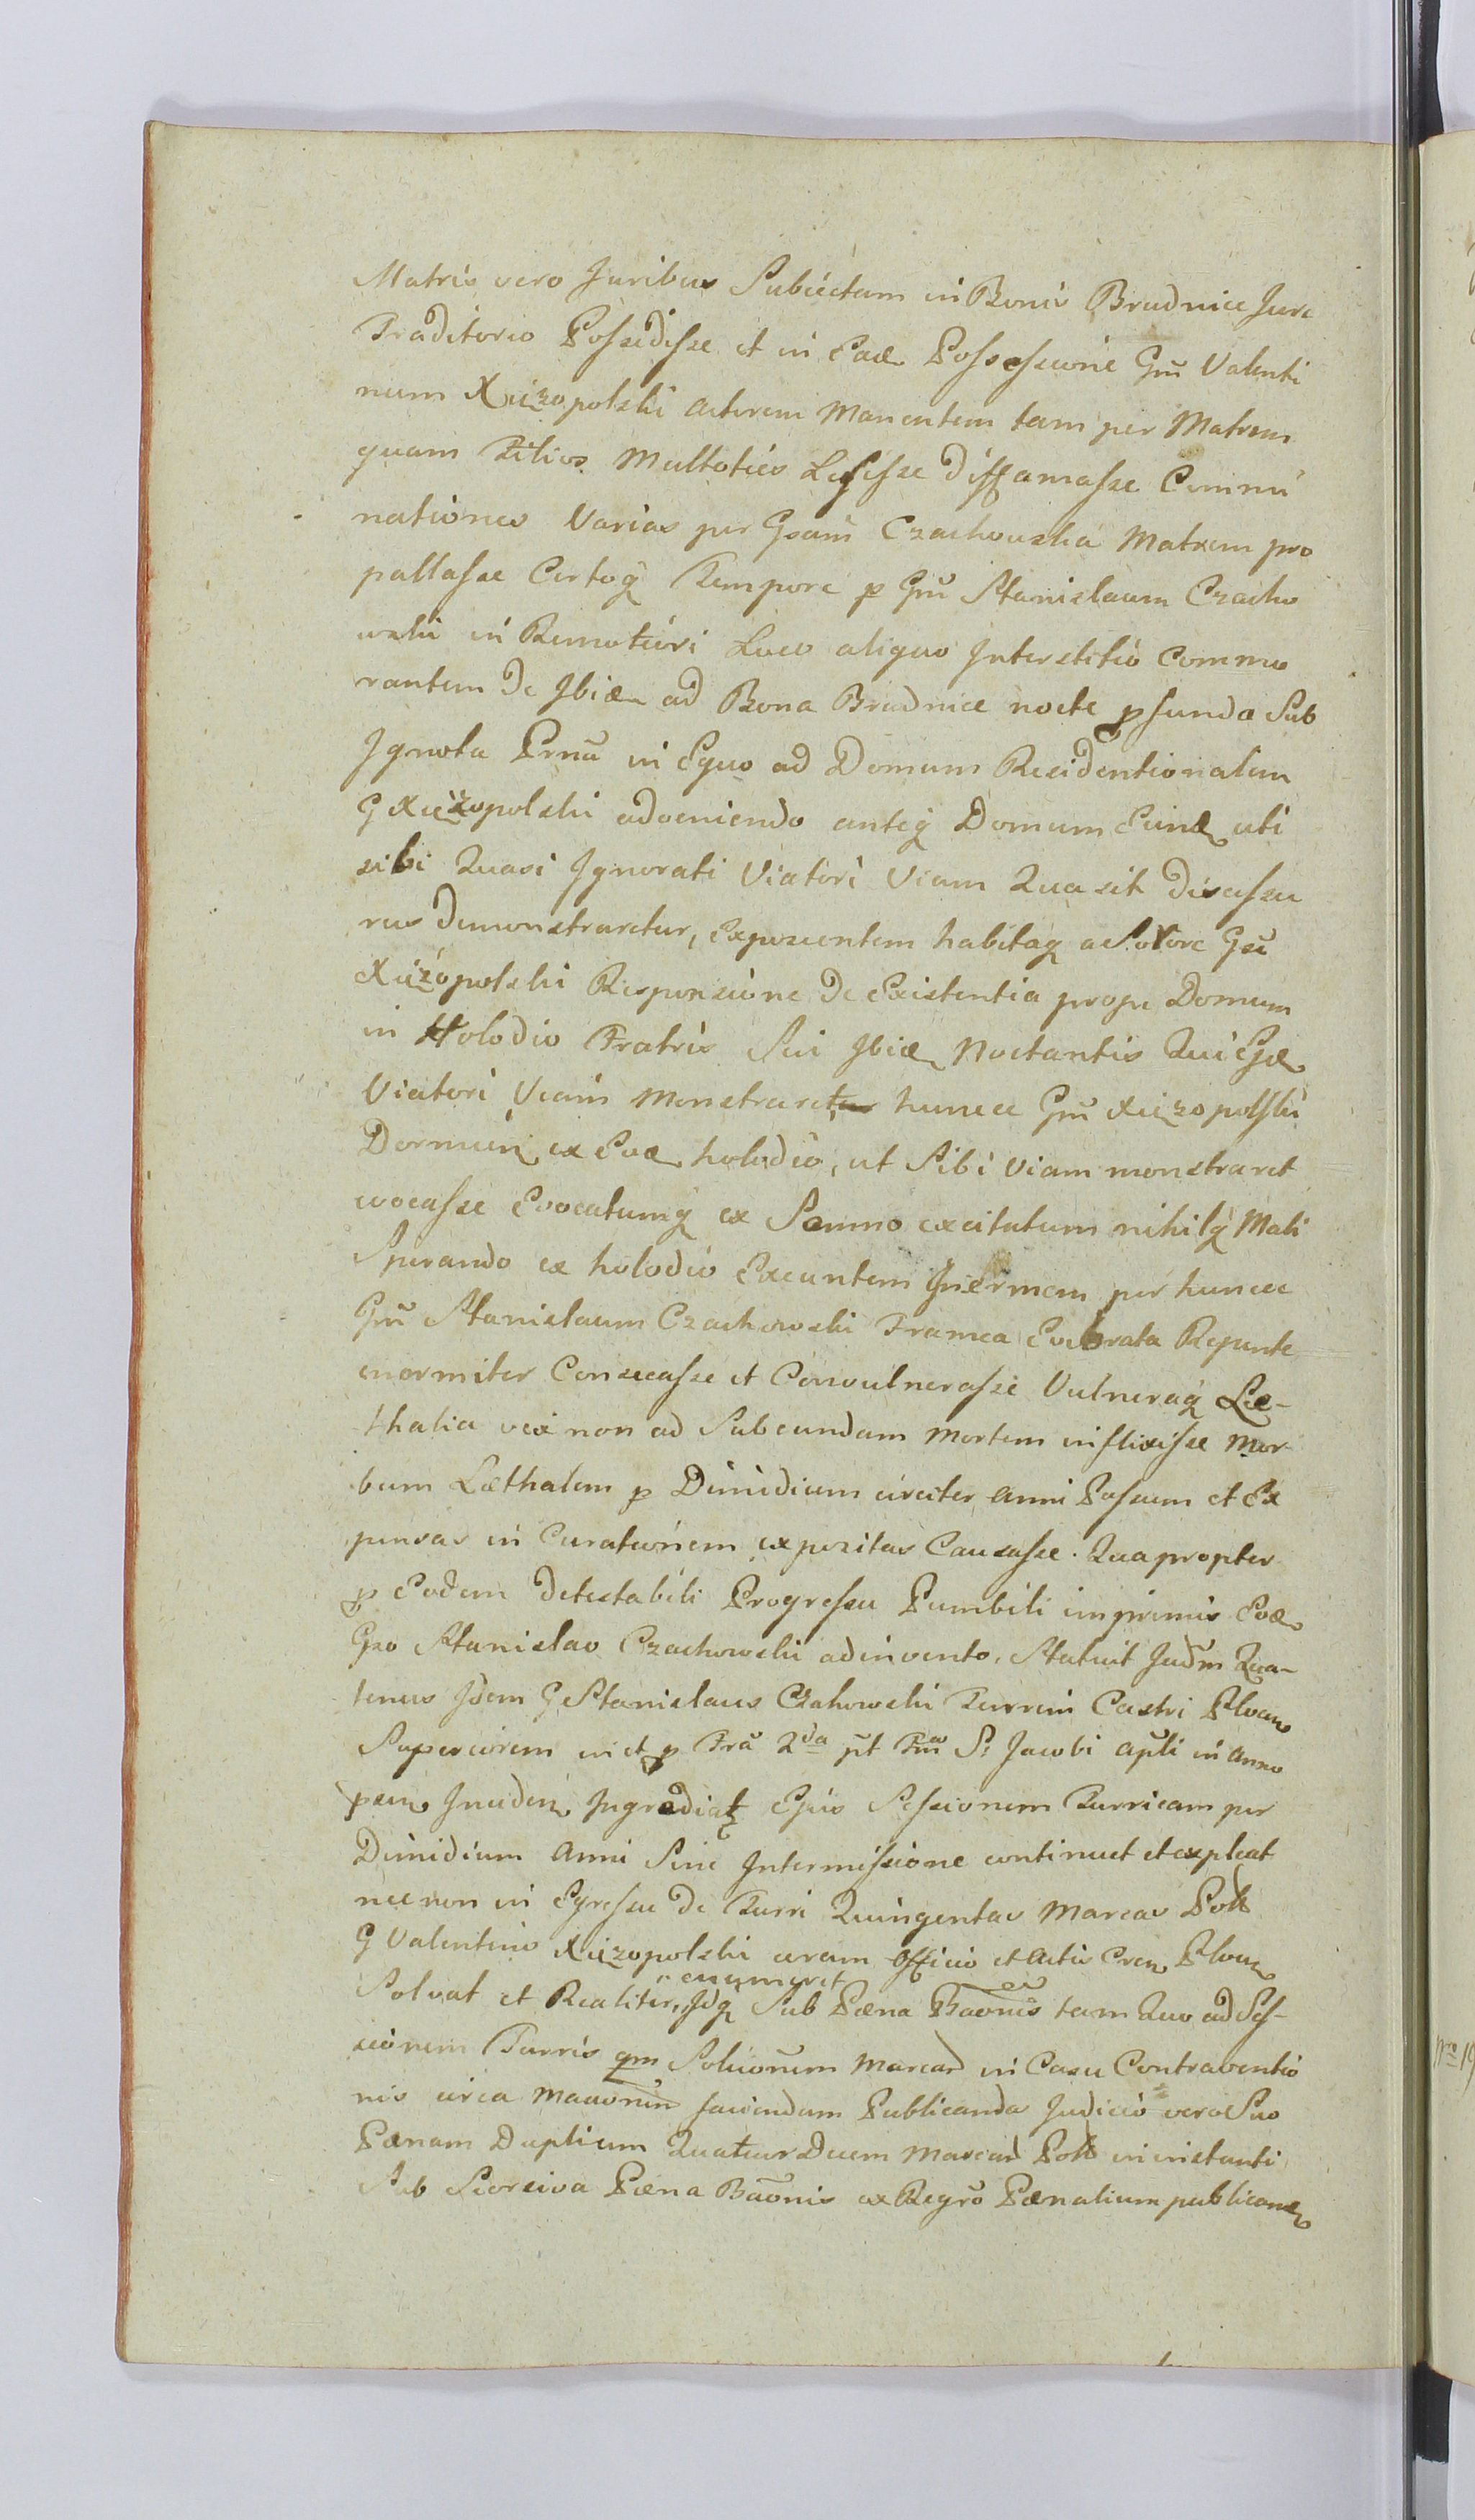 Matris vero Juribus Subiectam in Bonis Brudnice Jure
Traditorio Possedisse et in Eade Possessione Gnu Valenti
num Xiężopolski actorem Manentem tam per Matrem
quam Filios Multoties Lesisse diffamasse Commi
nationes Varias per Gsam Czachowska Matrem pro
pallasse Certoq Tempore p Gnu Stanislaum Czacho
wski in Remotiori Loco aliquo Interstitio Commo
rantem de Ibide ad Bona Brudnice nocte profunda Sub
Ignota Prna in Equo ad Domum Residentionalem
G Xiężopolski adveniendo anteq Domum Eund uti
sibi Quasi Ignorati Viatori Viam Qua sit discessu
rus demonstraretur, Exposcentem habitaq a Sorore Gsi
Xiężopolski Responsione de Existentia prope Domum
in Holodio Fratris Sui Ibide Noctantis Qui Ejd
Viatori Viam Monstraret hunce Gnu Xiężopolski
Dormien ex Eod holodio, ut Sibi viam monstraret
evocasse Evocatumq ex Somno excitatum nihilq Mali
Sperando ex holodio Exeuntem Inermem per huncce
Gnu Stanislaum Czachowski Framea Evibrata Repente
enormiter Consecasse et Convulnerasse Vulneraq Læ-
thalia vix non ad Subeundam Mortem inflixisse Mor-
bum Læthalem p Dimidium circiter anni Passum et Ex
pensas in Curationem expositas Causasse. Quapropter
pro Eodem detestabili Progressu Punibili imprimis Eod
Gso Stanislao Czachowski adinvento, Statuit Judm Qua-
tenus Idem G Stanislaus Czahowski Turrim Castri Plocen
Superiorem in et p Fra 2da pt Fm S: Jacobi Apli in Anno
psen Inciden Ingrediat Ejus Sessionem Turricam per
Dimidium Anni Sine Intermissione continuet et expleat
nec non in Egressu de Turri Quingentas Marcas Poll
G Valentino Xiężopolski coram Officio et Actis Cren Plocen
Solvat et Realiter enumeret, Idq Sub Pæna Baonis tam Quo ad Ses-
sionem Turris qm Soluonem Marcar in Casu Contraventio
nis circa faciendam Publicanda Judicio vero Suo
Pænam Duplicem Quatuordecem Marcar Poll in instanti
Sub Seorsiva Pæna Baonis ex Regro Pænalium publicand